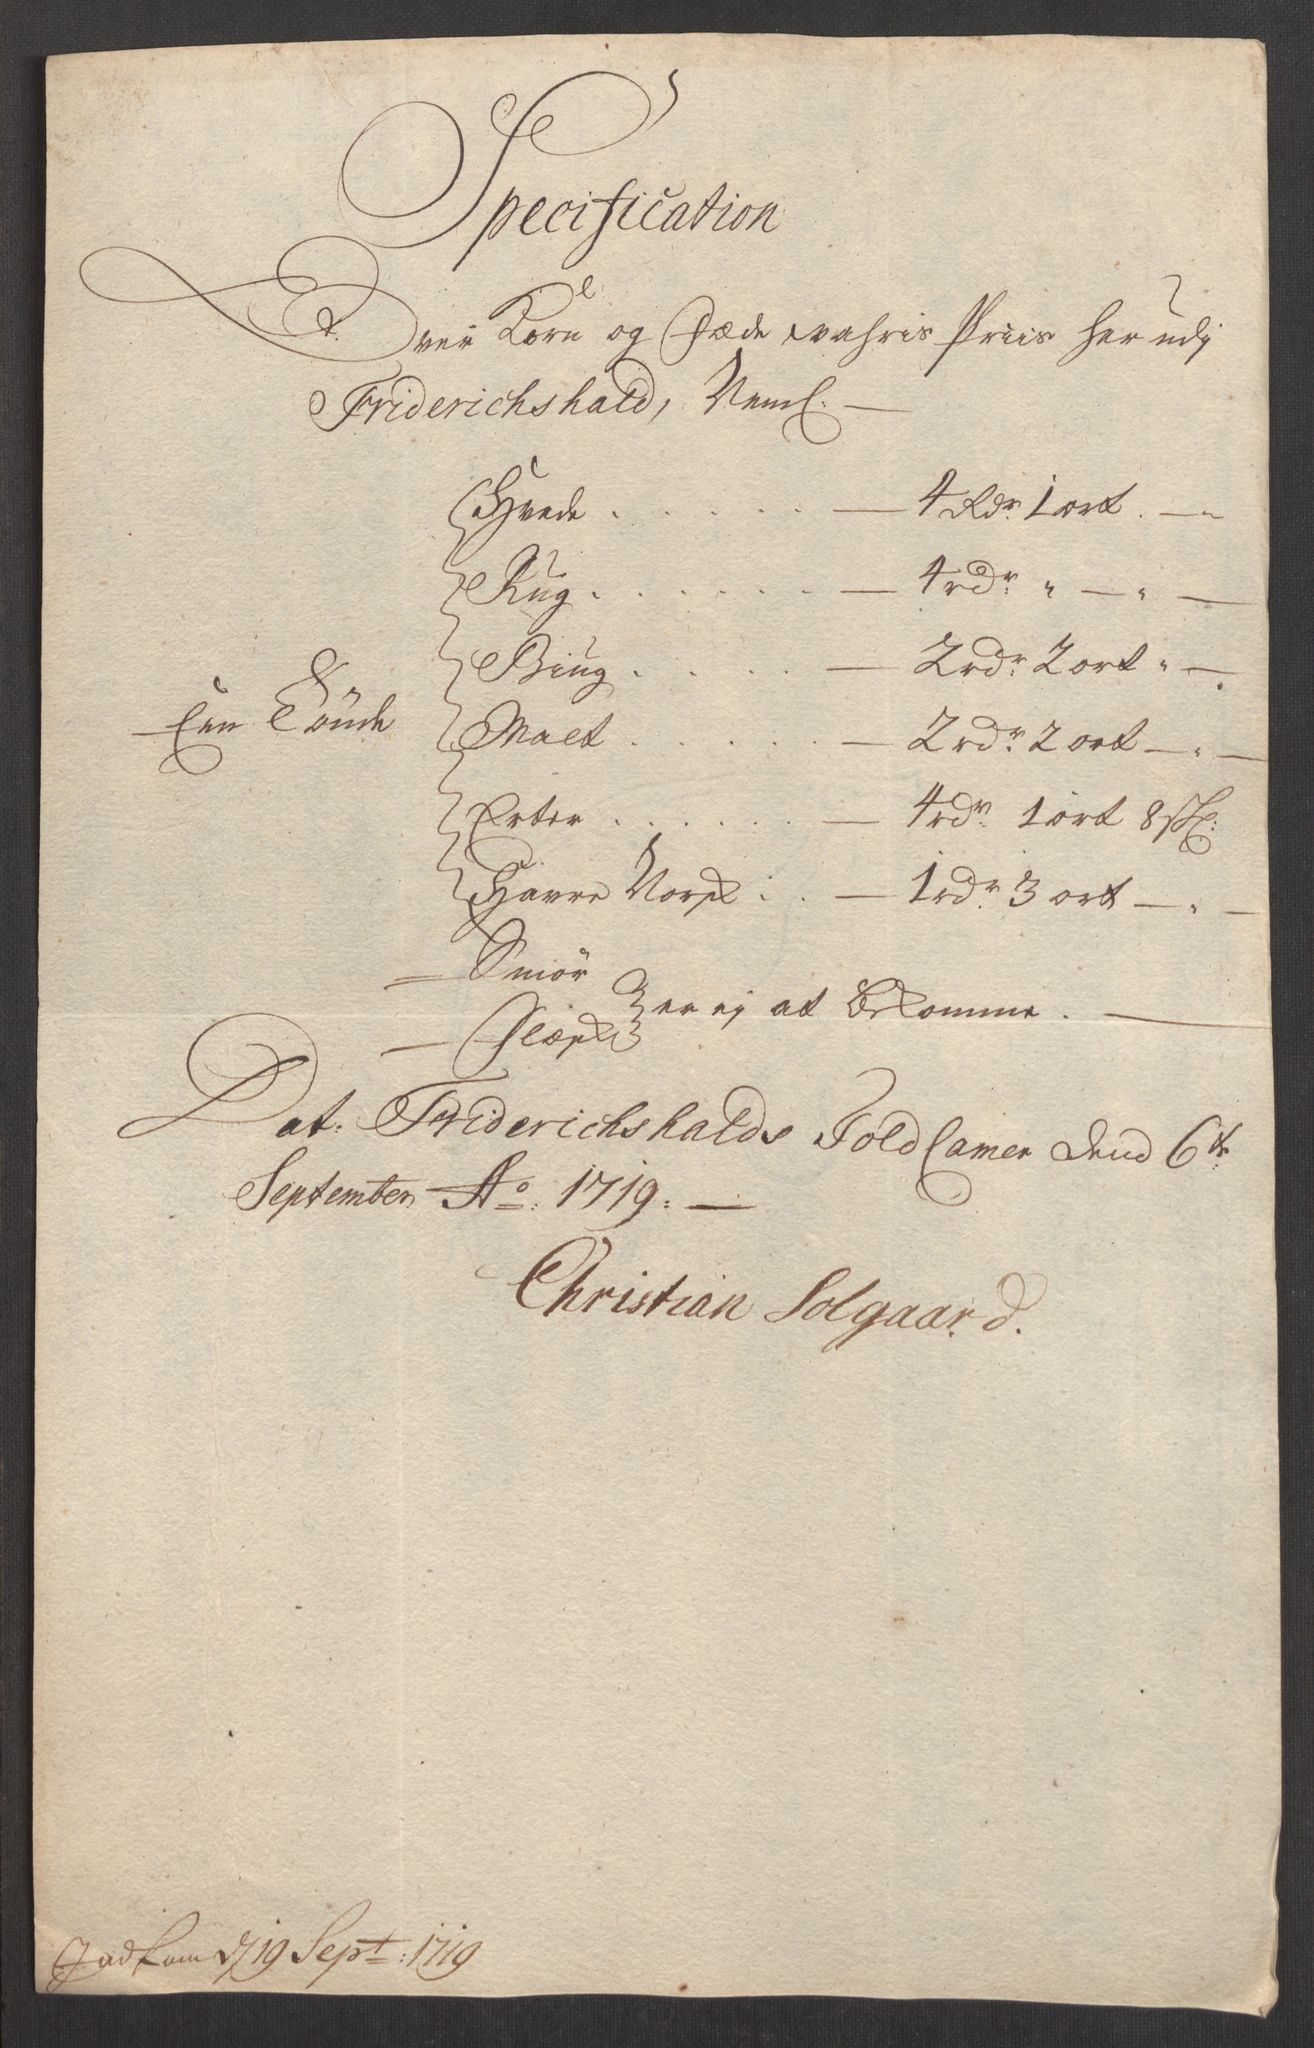 Specification
Over Korn og Fæde wahris Priis her udj
Friderichshald, Neml. —
Hvede . . . . . . — 4 Rdr. 1 ort. — "
Rug . . . . . . — 4 rdr. " — " —
Biug . . . . . — 2 rdr. 2 ort " —
Een Tønde
Malt . . . . . — 2 rdr. 2 ort — " —
Erter . . . . . . — 4 rdr. 1 ort 8 sk:
Havre Norsk . . — 1 rdr. 3 ort — " —
— Smör
— Flæsk } er ej at bekomme. —
Dat. Friderichshalds Told Camer dend 6te
September Ao. 1719. —
Christian Solgaard.
Indkom d 19 Sept: 1719